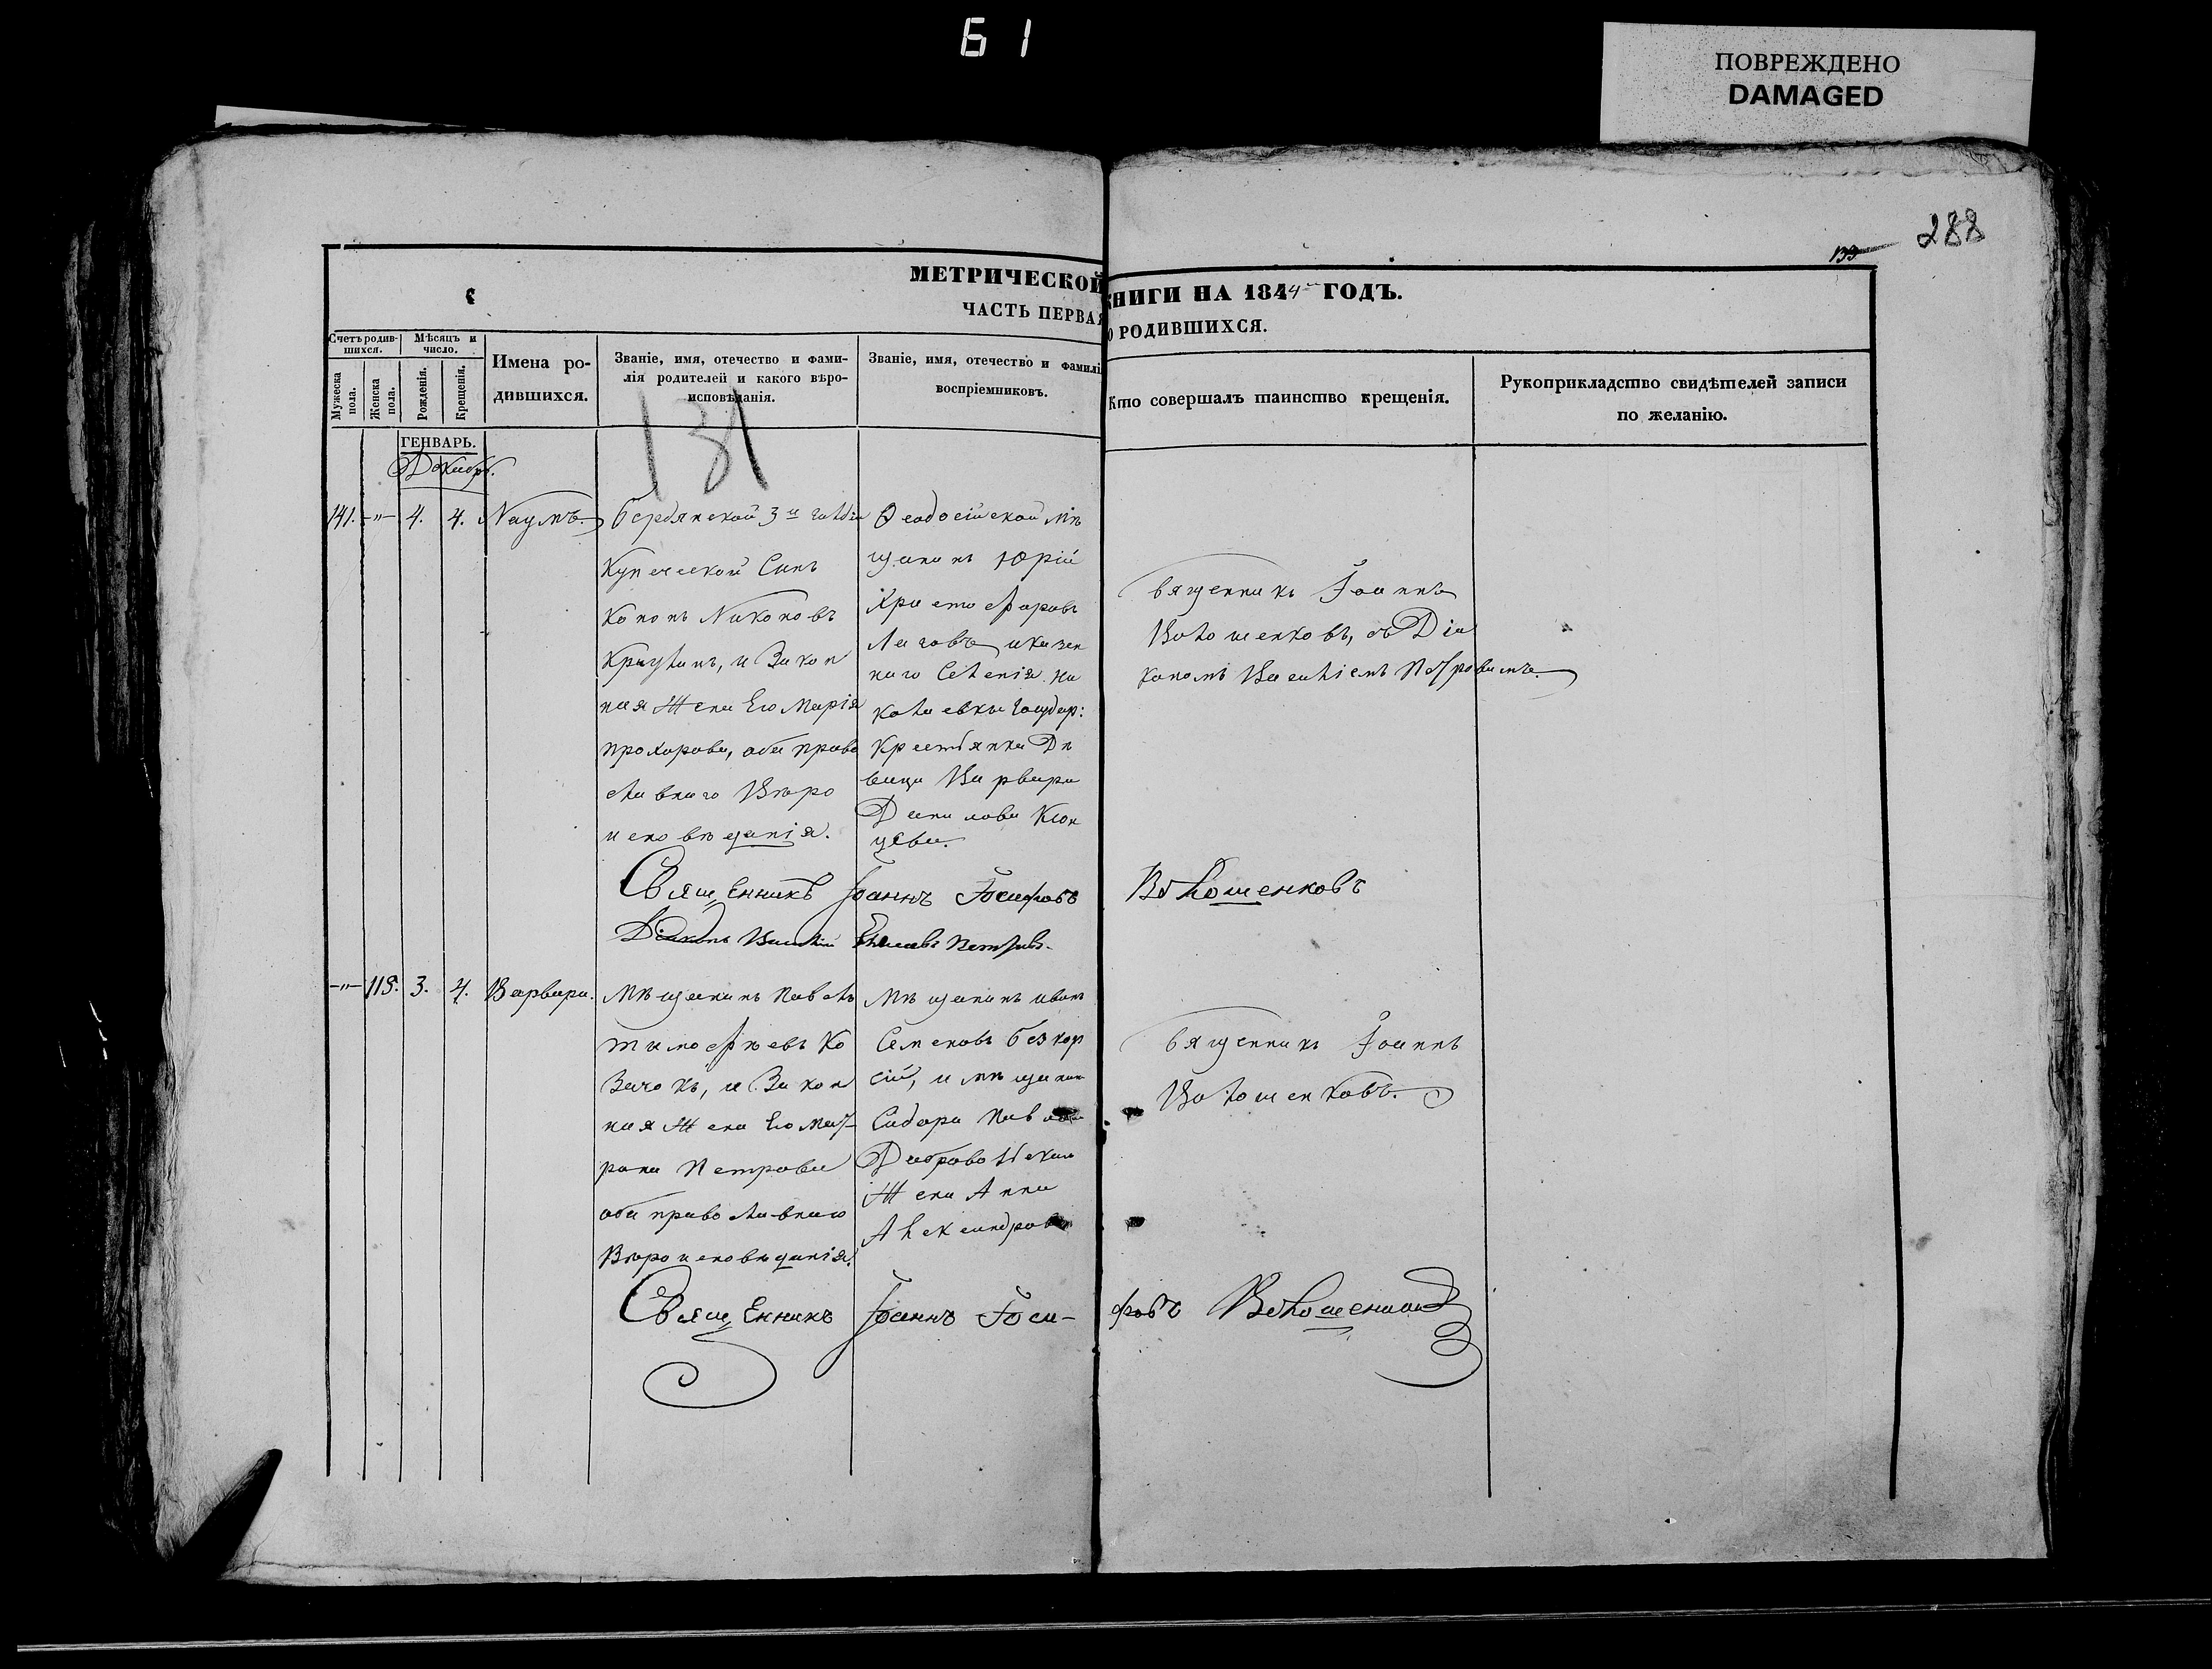 61
ПОВРЕЖДЕНО
DAMAGED
288
133
МЕТРИЧЕСКОЙ КНИГИ НА 1844й ГОДЪ.
ЧАСТЬ ПЕРВАЯ О РОДИВШИХСЯ.
Счетъ родившихся.
Мужеска пола.
Женска пола.
Мѣсяцъ и число.
Рожденія.
Крещенія.
Имена родившихся.
Званіе, имя, отечество и фамилія родителей и какого вѣроисповѣданія.
Званіе, имя, отечество и фамилі
воспріемниковъ.
Кто совершалъ таинство крещенія.
Рукоприкладство свидѣтелей записи
по желанію.
131
ГЕНВАРЬ.
Декабрь.
141. -"- 4. 4. Наумъ.
Бердянской 3й гильдіи
Купеческой Сынъ
Кононъ Никоновъ
и Закон
ная Жена Его Марія
Прохорова, оба право
славнаго Вѣро
исповѣданія.
Ѳеодосійской мѣ
щанинъ Юрій
Христофоровъ
и казен
наго Селенія Ни
колаевки Государ:
Крестьянка Дѣ
вица Варвара
Данилова
Священникъ Іоаннъ
Волошенковъ, съ Діа
кономъ Василіемъ Петровымъ.
Священникъ Іоаннъ Іосифовъ Волошенковъ
Діаконъ Василій Петровъ
-"- 118. 3. 4. Варвара.
Мѣщанинъ Павелъ
Тимофѣевъ Ко
зачокъ, и Закон
ная Жена Его Мат
рона Петрова
оба православнаго
Вѣроисповѣданія.
Мѣщанинъ Иванъ
Семеновъ Безкор
сій, и мѣщанин
Сидора Павлова
Жена Анна
Александрова
Священникъ Іоаннъ
Волошенковъ.
Священникъ Іоаннъ Іоси-
фовъ Волошенковъ